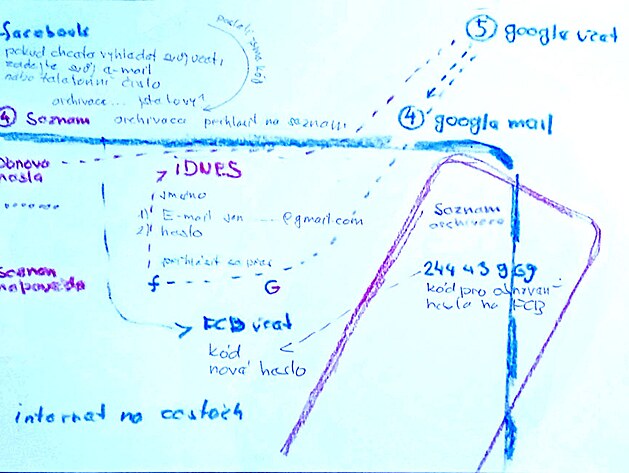 facebook
pokud chcete vyhledat svůj účet,
zadejte svůj e-mail
nebo telefonní číslo
archivace...
5 google účet
4 Seznam archivace přihlásit na seznam
4 google mail
Obnova
hesla
iDNES
jméno
1) E-mail jen ---- @gmail.com
2) heslo
přihlásit se přes
f G
Seznam
nápověda
Seznam
archivace
244 43 9 69
kód pro obnovení
hesla na FCB
FCB účet
kód
nové heslo
internet na cestách